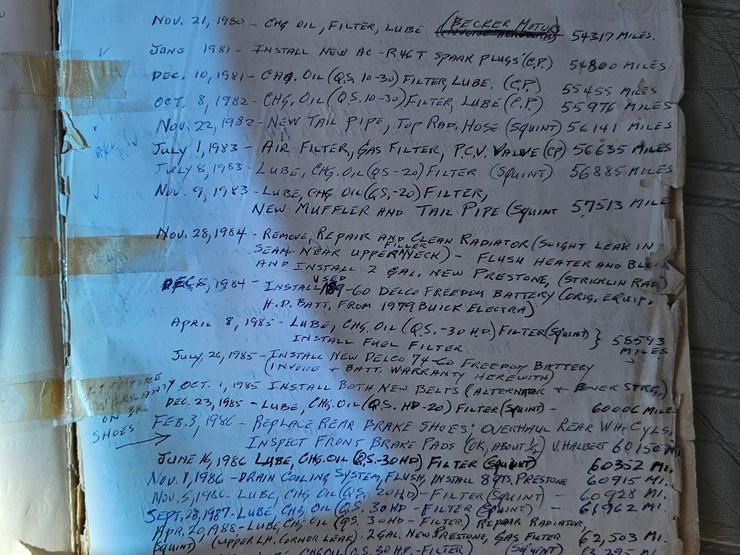 NOV. 21, 1980 - CHG OIL, FILTER, LUBE (BECKER MOTORS 54317 MILES.
JUNE 1981 - INSTALL NEW AC - R46T SPARK PLUGS (C.P.) 54800 MILES
DEC. 10, 1981 - CHG. OIL (Q.S. 10-30) FILTER, LUBE. (C.P.) 55455 MILES
OCT. 8, 1982 - CHG. OIL (Q.S. 10-30) FILTER, LUBE (C.P.) 55976 MILES
NOV. 22, 1982 - NEW TAIL PIPE, TOP RAD. HOSE (SQUINT) 56141 MILES
JULY 1, 1983 - AIR FILTER, GAS FILTER, P.C.V. VALVE (CP) 56635 MILES
JULY 8, 1983 - LUBE, CHG. OIL (QS-20) FILTER (SQUINT) 56885 MILES
NOV. 9, 1983 - LUBE, CHG OIL (QS,-20) FILTER,
NEW MUFFLER AND TAIL PIPE (SQUINT 57513 MILE
NOV. 28, 1984 - REMOVE, REPAIR AND CLEAN RADIATOR (SLIGHT LEAK IN
SEAM NEAR UPPER FILLER NECK) - FLUSH HEATER AND
AND INSTALL 2 GAL. NEW PRESTONE, (STRICKLIN RAD)
1984 - INSTALL USED -60 DELCO FREEDOM BATTERY (ORIG. EQUIP.
H.D. BATT. FROM 1979 BUICK ELECTRA)
APRIL 8, 1985 - LUBE, CHG. OIL (Q.S. -30 HD) FILTER (SQUINT) } 58593
INSTALL FUEL FILTER MILES
JULY 26, 1985 - INSTALL NEW DELCO 74-60 FREEDOM BATTERY
(INVOICE + BATT. WARRANTY HEREWITH)
OCT. 1, 1985 INSTALL BOTH NEW BELTS (ALTERNATOR + POWER STRG.)
DEC. 23, 1985 - LUBE, CHG. OIL (Q.S. HD-20) FILTER (SQUINT) - 60006 MILE
ON
SHOES
FEB. 3, 1986 - REPLACE REAR BRAKE SHOES; OVERHAUL REAR WH. CYLS,
INSPECT FRONT BRAKE PADS (OK, ABOUT ½) V. HALBERT 60150 MI
JUNE 16, 1986 LUBE, CHG. OIL (Q.S.-30HD) FILTER (SQUINT) 60352 MI.
NOV. 1, 1986 - DRAIN COOLING SYSTEM, FLUSH, INSTALL 8 QTS. PRESTONE 60915 MI.
NOV. 5, 1986 - LUBE, CHG OIL (Q.S. 20HD) - FILTER (SQUINT) - 60928 MI.
SEPT. 28, 1987 - LUBE, CHG OIL (QS. 30HD - FILTER (SQUINT) - 61962 MI.
APR. 20, 1988 - LUBE, CHG OIL (QS. 30HD - FILTER) REPAIR RADIATOR,
SQUINT) (UPPER L.H. CORNER LEAK) 2 GAL. NEW PRESTONE, GAS FILTER 62,503 MI.